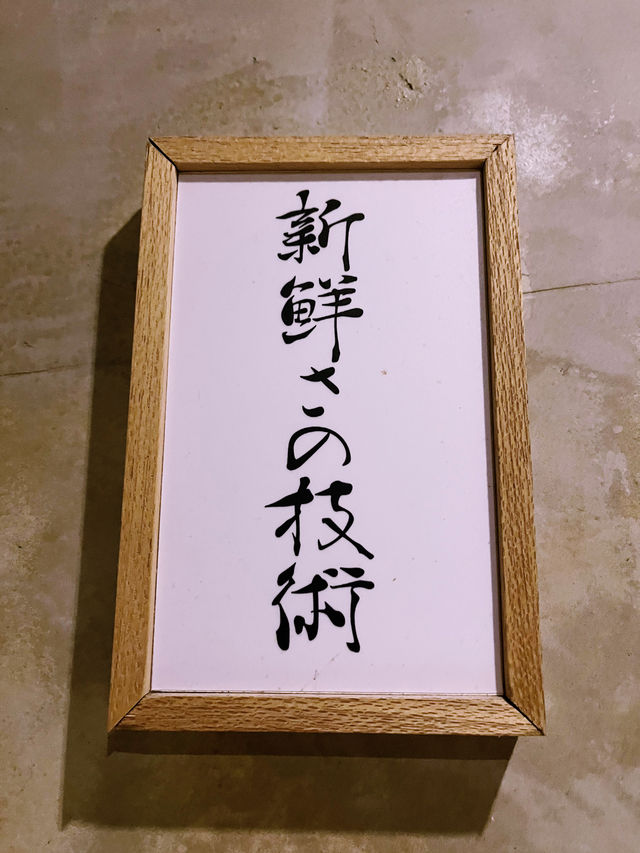 新鮮さの技術